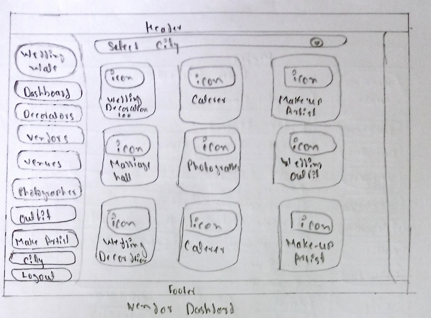 Header
Select City
Wedding
Mate
Dashboard
Decorators
Vendors
Venues
Photographer
Outfit
Make Artist
City
Logout
icon
Wedding
Decoration
icon
Caterer
icon
Make-up
Artist
icon
Marriage
hall
icon
Photographer
icon
Wedding
outfit
icon
Wedding
icon
Caterer
icon
Make-up
Artist
Footer
Vendor